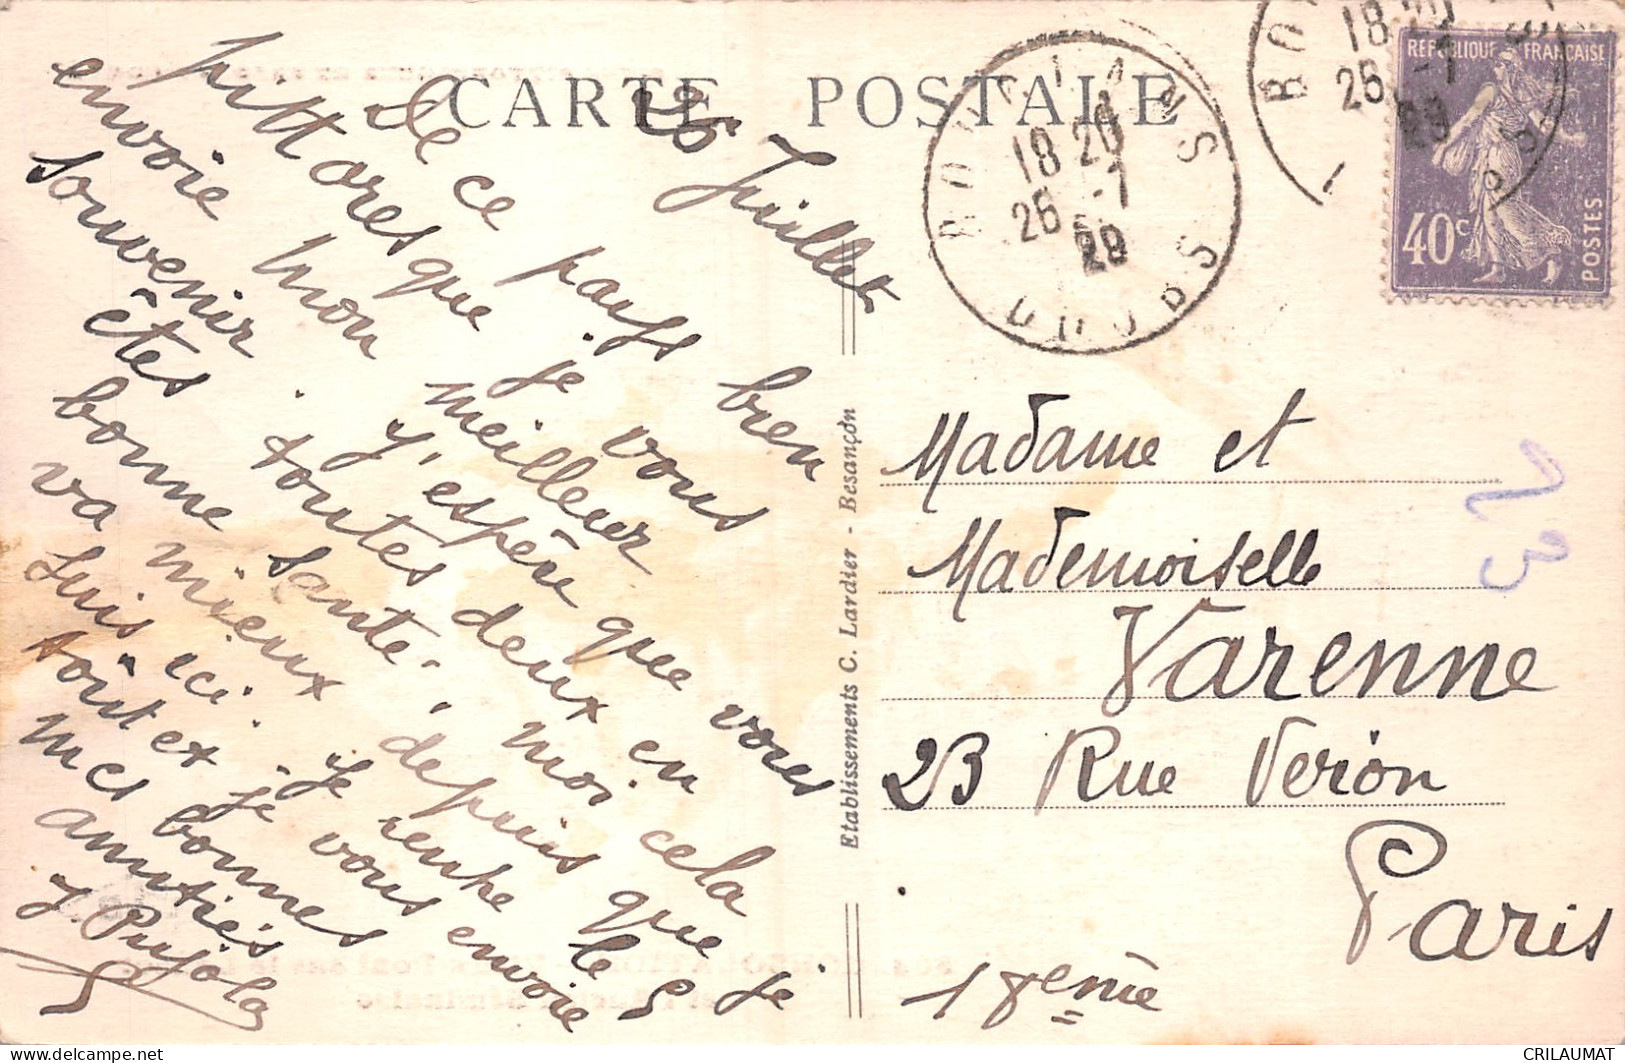 CARTE POSTALE
26 Juillet
De ce pays bien
pittoresque je vous
envoie mon meilleur
souvenir. J'espère que vous
êtes toutes deux en
bonne santé. moi cela
va mieux depuis que je
suis ici. Je rentre le 5
Août et je vous envoie
mes bonnes
amitiés
J. Pujola
Etablissements C. Lardier - Besançon
18 20
26 -7
29
DOUBS
18 20
26 -7
29
REPUBLIQUE FRANÇAISE
40c
POSTES
Madame et
Mademoiselle
Varenne
23 Rue Veron
Paris
18eme
23
CRILAUMAT
delcampe.net